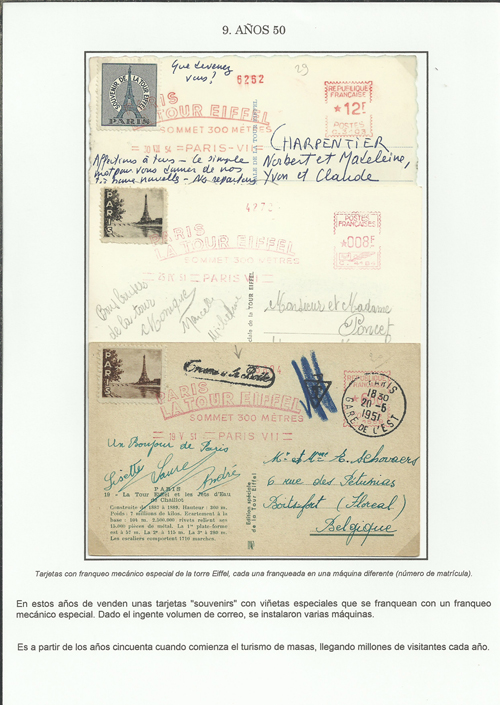 9. AÑOS 50
SOUVENIR DE LA TOUR EIFFEL
PARIS
Que devenez
vous ?
29
6262
PARIS
LA TOUR EIFFEL
SOMMET 300 MÈTRES
PARIS-VII
REPUBLIQUE
FRANÇAISE
12F
POSTES
CHARPENTIER
Norbert et Madeleine,
Yvon et Claude
à tous - Ce simple
mot pour vous donner de nos
PARIS
LA TOUR EIFFEL
SOMMET 300 MÈTRES
PARIS VII
POSTES
FRANÇAISES
008F
Bons baisers
de la tour
Monique
Marcelle
Monsieur et Madame
Poncet
PARIS
LA TOUR EIFFEL
SOMMET 300 MÈTRES
18 V 51 PARIS VII
PARIS
18 30
20-5
1951
GARE DE L'EST
Un Bonjour de Paris
Gisette
André
PARIS
19 - La Tour Eiffel et les Jets d'Eau
de Chaillot
Construite de 1887 à 1889. Hauteur : 300 m.
Poids : 7 millions de kilos. Ecartement à la
base : 104 m. 2.500.000 rivets relient ses
15.000 pièces de métal. La 1re plate-forme
est à 57 m. La 2e à 115 m. La 3e à 280 m.
Les escaliers comportent 1710 marches.
Edition spéciale
de la Tour Eiffel
Mr et Mme E. Schovaers
6 rue des
Boitsfort (Floréal)
Belgique
Tarjetas con franqueo mecánico especial de la torre Eiffel, cada una franqueada en una máquina diferente (número de matrícula).
En estos años de venden unas tarjetas "souvenirs" con viñetas especiales que se franquean con un franqueo
mecánico especial. Dado el ingente volumen de correo, se instalaron varias máquinas.
Es a partir de los años cincuenta cuando comienza el turismo de masas, llegando millones de visitantes cada año.